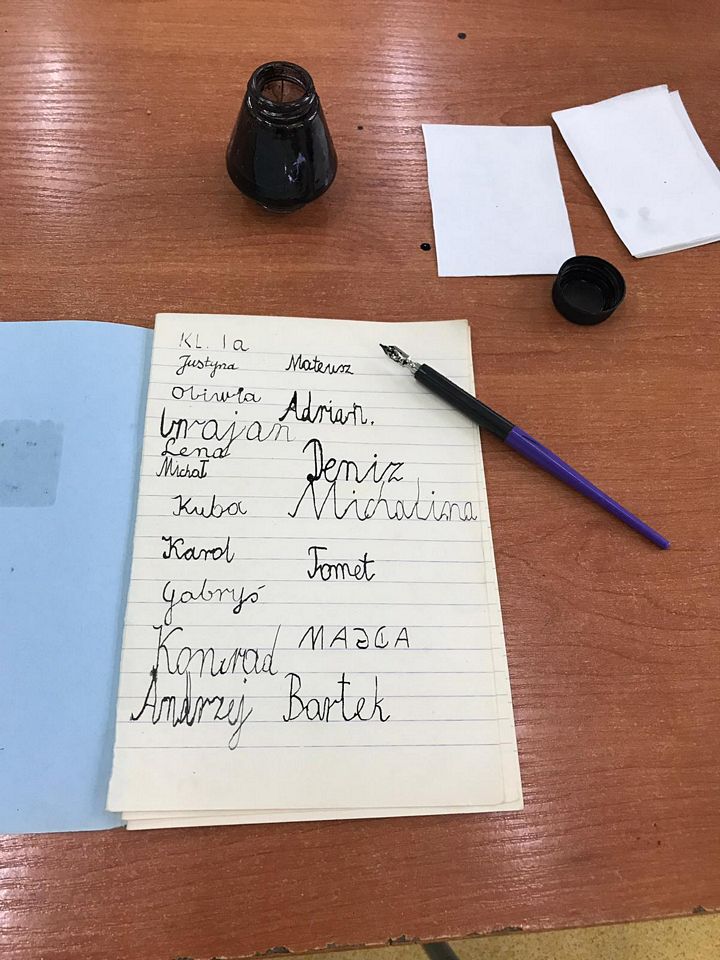 KL. 1a
Justyna Mateusz
Oliwia Adrian.
Lena Deniz
Michał
Kuba Michalina
Karol Tomet
Gabryś
Konrad
Andrzej Bartek